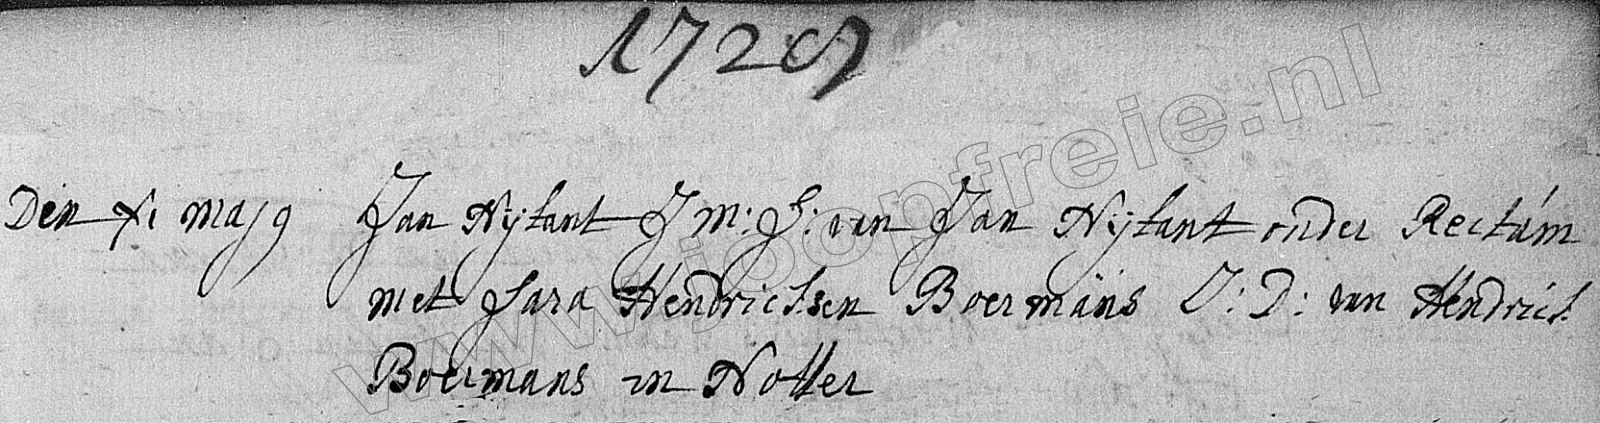 1729
Den xi majy Jan Nijlant J m: S: van Jan Nijlant onder Rectum
met Sara Hendricksen Boermans J: D: van Hendrick
Boermans in Notter
www.joopfreie.nl